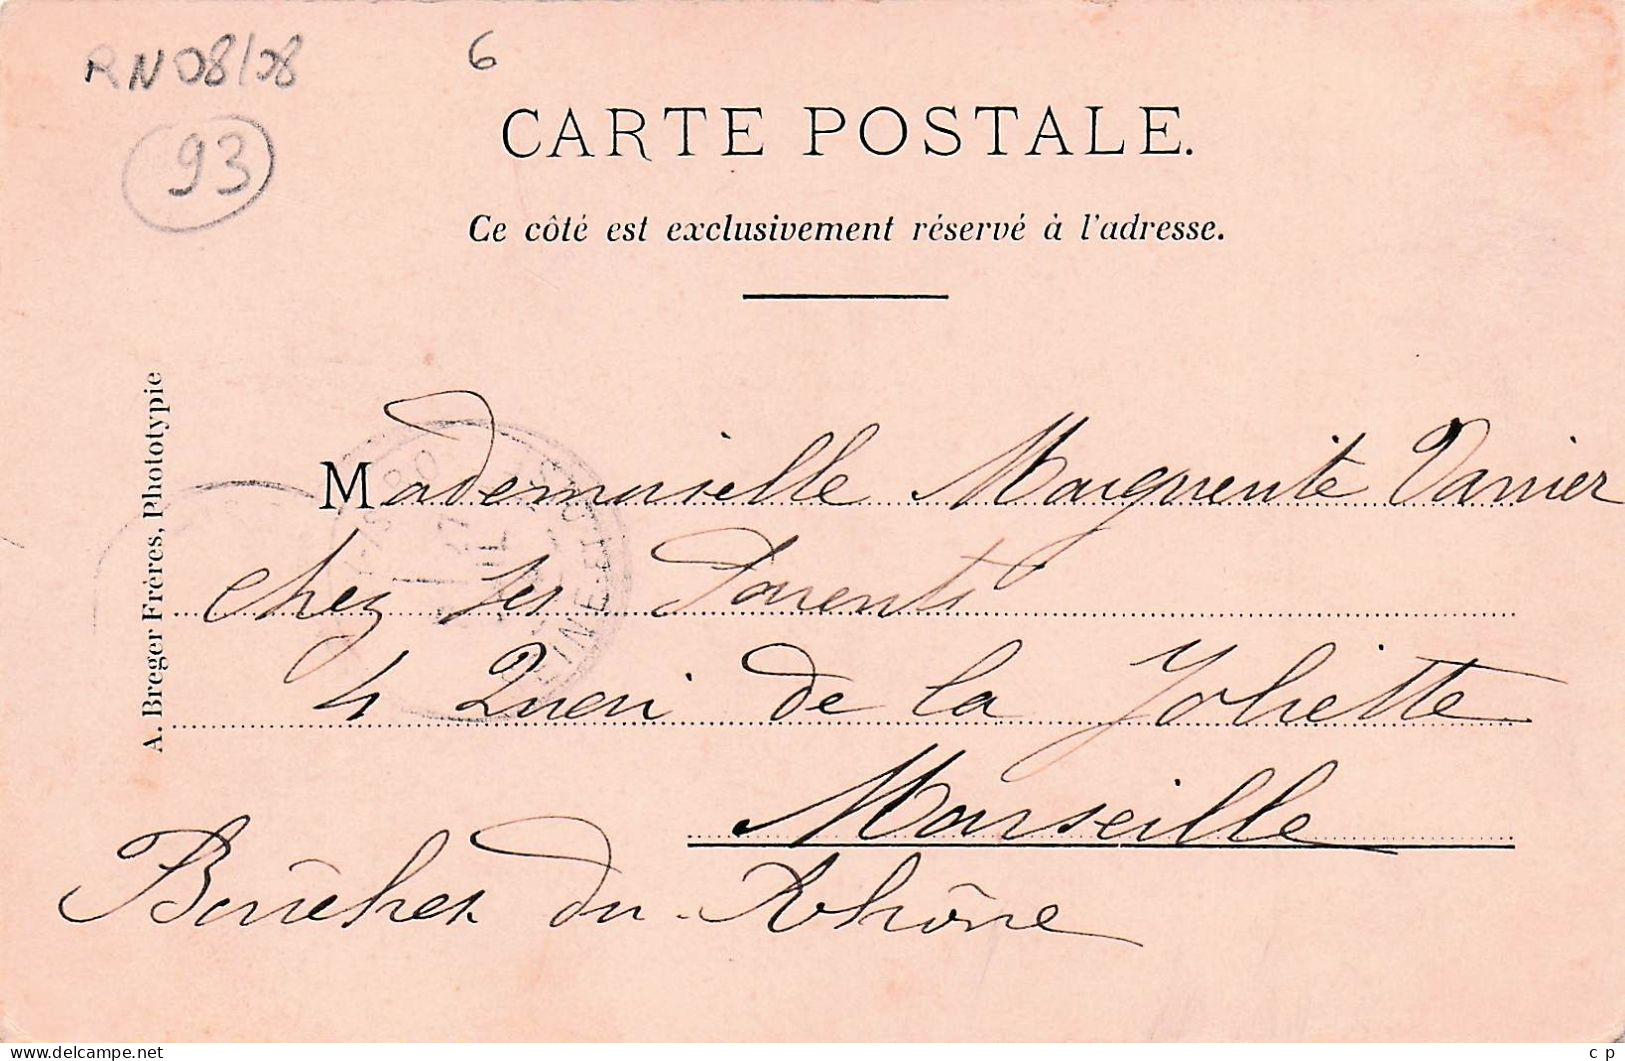 RN08/08
6
93
CARTE POSTALE.
Ce côté est exclusivement réservé à l'adresse.
A. Breger Frères, Phototypie
Mademoiselle Marguerite Vanier
chez ses Parents
4 Quai de la Joliette
Marseille
Bouches du Rhône
delcampe.net
c p